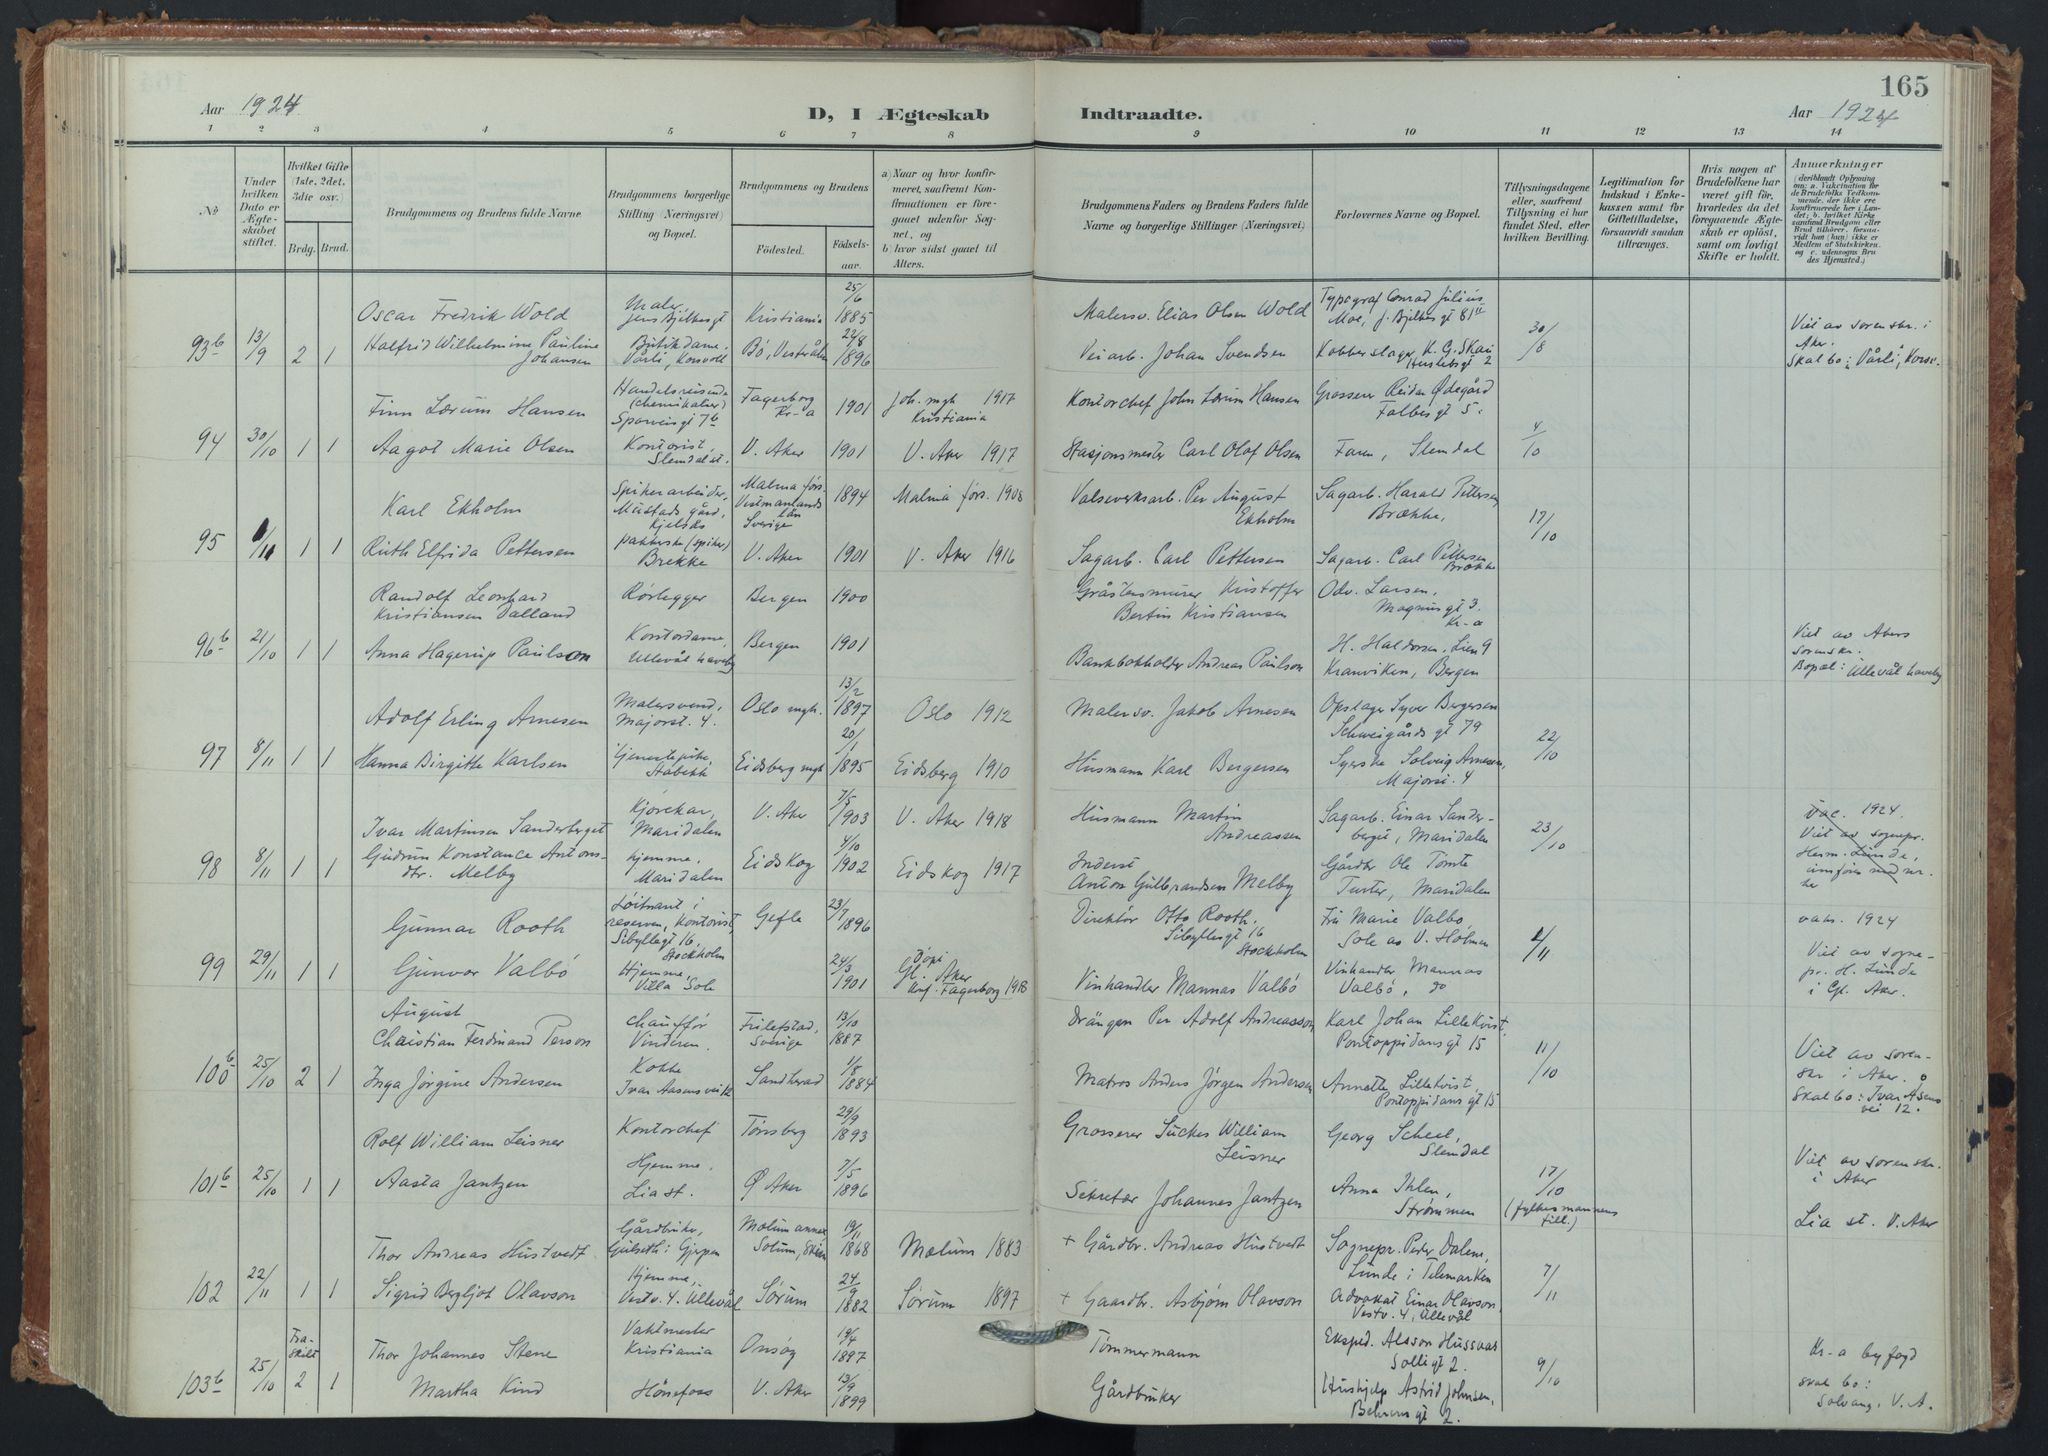 165
Aar 1924
D, I Ægteskab
Indtraadte.
Aar 1924
1 2 3 4 5 6 7 8 9 10 11 12 13 14
No
Under hvilken Dato er Ægteskabet stiftet.
Hvilket Gifte (1ste, 2det, 3die osv.)
Brdg. Brud.
Brudgommens og Brudens fulde Navne
Brudgommens borgerlige Stilling (Næringsvei) og Bopæl.
Brudgommens og Brudens
Födested.
Födselsaar.
a) Naar og hvor konfirmeret, saafremt Konfirmationen er foregaaet udenfor Sognet, og
b) hvor sidst gaaet til Alters.
Brudgommens Faders og Brudens Faders fulde Navne og borgerlige Stillinger (Næringsvei)
Forlovernes Navne og Bopæl.
Tillysningsdagene eller, saafremt Tillysning ei har fundet Sted, efter hvilken Bevilling.
Legitimation for Indskud i Enkekassen samt for Giftetilladelse, forsaavidt saadan tiltrænges.
Hvis nogen af Brudefolkene har været gift før, hvorledes da det foregaaende Ægteskab er oplöst, samt om lovligt Skifte er holdt.
Anmærkninger
(deriblandt Oplysning om: a. Vakcination for de Brudefolks Vedkommende, der ikke ere konfirmerede her i Landet; b. hvilket Kirkesamfund Brudgom eller Brud tilhörer, forsaavidt han (hun) ikke er Medlem af Statskirken, og c. udensogns Brudes Hjemsted.)
Oscar Fredrik Wold Maler, Jens Bjelkesgt Kristiania 25/6 1885 Malersv. Elias Olsen Wold Typograf Conrad Julius Moe, J. Bjelkes gt 81
93b 13/9 2 1 Halfrid Wilhelmine Pauline Johansen Butikdame, Vårli, Korsvoll Bø, Vesterålen 22/8 1896 Veiarb. Johan Svendsen Kobberslager K. G. Skau Herslebsgt 2 30/8 Viet av sorenskr. i Aker. Skal bo: Vårli, Korsv.
Finn Lærum Hansen Handelsreisende (chemikalier) Sporveisgt 7b Fagerborg Kr-a 1901 Joh. mgh 1917 Kristiania Kontorchef John Lærum Hansen Grosserer Reidar Ødegård Falbes gt 5.
94 30/10 1 1 Aagot Marie Olsen Kontorist, Slemdal st. V. Aker 1901 V. Aker 1917 Stasjonsmester Carl Olaf Olsen Faren, Slemdal 4/10
Karl Ekholm Spikerarbeider, Mustads gård, Kjelsås Malma förs. Vestmanlands län Sverige 1894 Malma förs. 1908 Valseverksarb. Per August Ekholm Sagarb. Harald Pettersen Brække,
95 1/11 1 1 Ruth Elfrida Pettersen pakkerske (spiker) Brekke V. Aker 1901 V. Aker 1916 Sagarb. Carl Pettersen Sagarb. Carl Pettersen Brække 17/10
Randolf Leonhard Kristiansen Dalland Rørlegger Bergen 1900 Gråstensmurer Kristoffer Bertin Kristiansen Odv. Larsen, Magnus gt 3. Kr-a
96b 21/10 1 1 Anna Hagerup Paulson Kontordame, Ullevål haveby Bergen 1901 Bankbokholder Andreas Paulson H. Haldorsen, Lien 9 Kranviken, Bergen Viet av Akers sorenskr. Bopæl: Ullevål haveby
Adolf Erling Arnesen Malersvend, Majorst. 4. Oslo mgh. 13/2 1897 Oslo 1912 Malersv. Jakob Arnesen Opslager Syver Bergersen Schweigårds gt 79
97 8/11 1 1 Hanna Birgitte Karlsen Tjenestepike, Stabekk Eidsberg mgh 20/1 1895 Eidsberg 1910 Husmann Karl Bergersen Syerske Solveig Arnesen, Majorst. 4 22/10
Ivar Martinsen Sanderberget Kjørekar, Maridalen V. Aker 7/5 1903 V. Aker 1918 Husmann Martin Andreassen Sagarb. Einar Sanderberget, Maridalen vac. 1924.
98 8/11 1 1 Gudrun Konstance Antonsdtr. Melby hjemme, Maridalen Eidskog 4/10 1902 Eidskog 1917 Inderst Anton Gulbrandsen Melby Gårdbr Ole Tømte Turter, Maridalen 23/10 Viet av sognepr. Herm. Lunde,
Gunnar Rooth Løitnant i reserven, Kontorist, Sibyllegt 16, Stockholm Gefle 23/7 1896 Direktör Otto Rooth, Sibyllegt 16 Stockholm Fru Marie Valbø Sole av V. Holmen vaks. 1924
99 29/11 1 1 Gunvor Valbø Hjemme, Villa Sole 24/3 1901 Døpt Gl. Aker konf. Fagerborg 1918 Vinhandler Mannas Valbø Vinhandler Mannas Valbø, do 4/11 Viet av sognepr. H. Lunde i Gl. Aker.
August Christian Ferdinand Person chauffør Vinderen. Frilefstad, Sverige 13/10 1887 Drängen Per Adolf Andreasson Karl Johan Lillekvist, Pontoppidans gt 15
100b 25/10 2 1 Inga Jörgine Andersen Kokke Ivar Aasens vei 12 Sandherad 1/8 1884 Matros Anders Jörgen Andersen Annette Lillekvist, Pontoppidans gt 15 11/10 Viet av sorenskr i Aker. Skal bo: Ivar Åsens vei 12.
Rolf William Leisner Kontorchef Tønsberg 29/9 1893 Grosserer William Leisner Georg Scheel, Slemdal
101b 25/10 1 1 Aasta Jantzen Hjemme, Lia st. Ø Aker 7/5 1896 Sekretær Johannes Jantzen Anna Ihlen, Strømmen 17/10 (fylkesmannens till.) Viet av sorenskr. i Aker Lia st. V. Aker
Thor Andreas Hustvedt Gårdbruker, Gulseth i Gjerpen Mælum annex Solum, Skien 19/11 1868 Mælum 1883 + Gårdbr. Andreas Hustvedt Sognepr. Peder Dalen, Lunde i Telemarken
102 22/11 1 1 Sigrid Bergljot Olavson Hjemme, Vestv. 4. Ullevål Sørum 24/9 1882 Sørum 1897 + Gaardbr. Asbjørn Olavson Advokat Einar Olavson, Vestv. 4, Ullevål 7/11
Thor Johannes Stene Vaktmester Kristiania Onsøy 19/4 1897 Tømmermann Eksped. Alsson Hussvar Solligt 2.
103b 25/10 Fraskilt 2 1 Martha Kind Hønefoss V. Aker 13/9 1899 Gårdbruker Hushjelp Astrid Johnsen, Behrens gt 2. 9/10 Kr-a byfogd skal bo: Solvang, V. A.